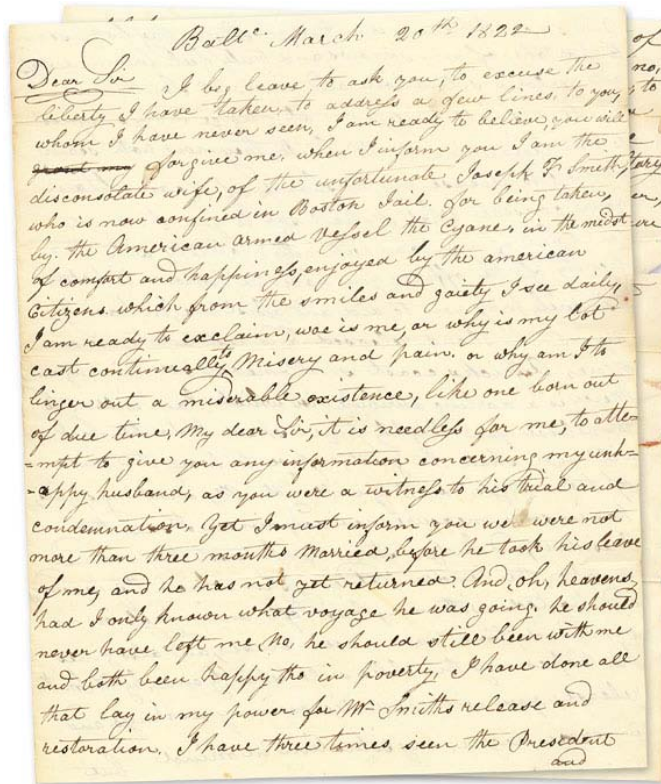 Balte. March 20th 1822
Dear Sir I beg leave to ask you, to excuse the
liberty I have taken, to address a few lines, to you,
whom I have never seen, I am ready to believe, you will
grant my forgive me, when I inform you I am the
disconsolate wife, of the unfortunate Joseph F Smith,
who is now confined in Boston Jail. for being taken,
by. the American armed Vessel the Cyane, in the midst
of comfort and happiness, enjoyed by the american
Citizens. which from the smiles and gaiety I see daily,
I am ready to exclaim, woe is me, or why is my Lot
cast continually to Misery and pain. or why am I to
linger out a miserable existence, like one born out
of due time, My dear Sir, it is needless for me, to atte-
-mpt to give you any information concerning my unh-
-appy husband, as you were a witness to his trial and
condemnation. Yet I must inform you we were not
more than three months Married, before he took his leave
of me, and he has not yet returned. And, oh, heavens,
had I only known what voyage he was going. he should
never have left me, No, he should still been with me
and both been happy tho in poverty, I have done all
that lay in my power for Mr Smiths release and
restoration. I have three times seen the Presedent
and
of
no,
to